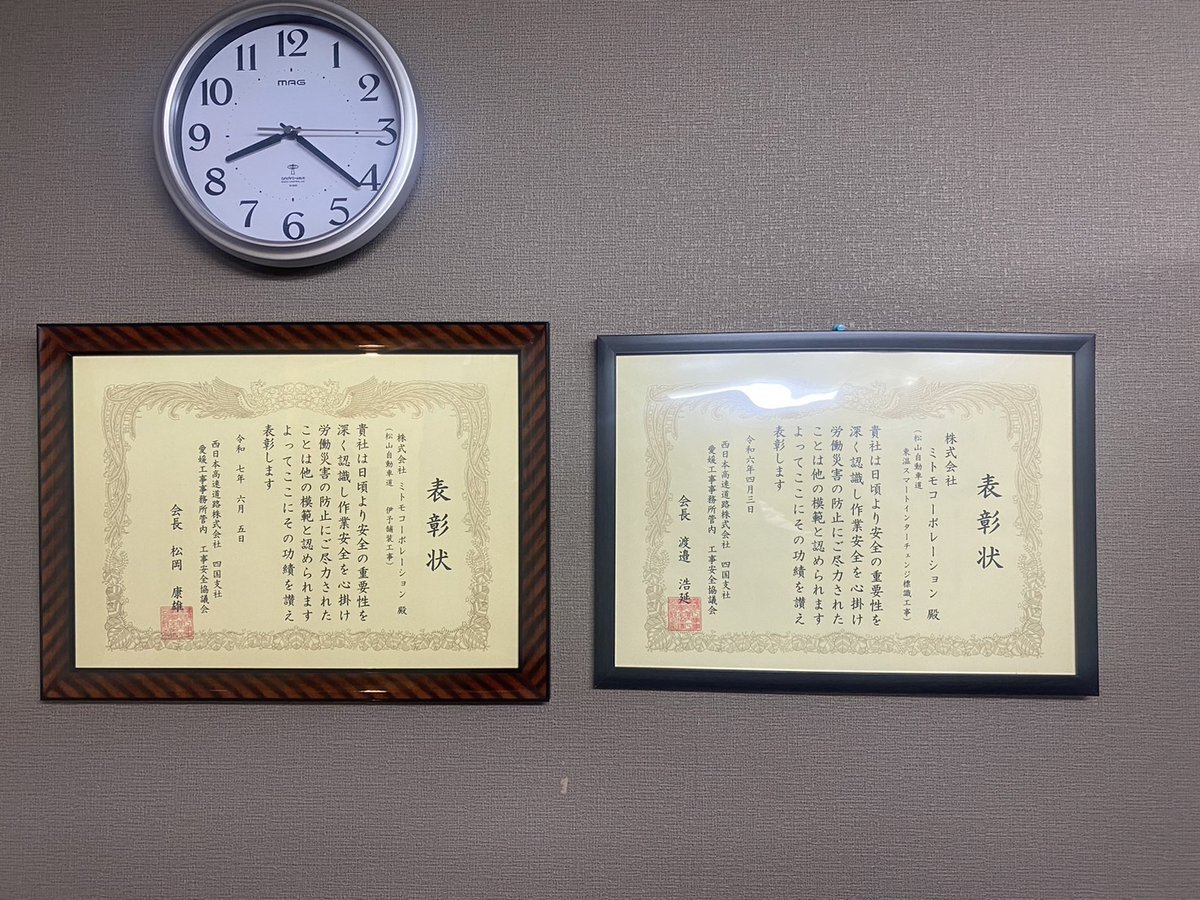 12
1
2
3
4
5
6
7
8
9
10
11
MAG
表彰状
株式会社 ミトモコーポレーション 殿
(松山自動車道 伊予舗装工事)
貴社は日頃より安全の重要性を
深く認識し作業安全を心掛け
労働災害の防止にご尽力された
ことは他の模範と認められます
よってここにその功績を讃え
表彰します
令和 七年 六月 五日
西日本高速道路株式会社 四国支社
愛媛工事事務所管内 工事安全協議会
会長 松岡 康雄
表彰状
株式会社
ミトモコーポレーション 殿
(松山自動車道
東温スマートインターチェンジ標識工事)
貴社は日頃より安全の重要性を
深く認識し作業安全を心掛け
労働災害の防止にご尽力された
ことは他の模範と認められます
よってここにその功績を讃え
表彰します
令和六年四月三日
西日本高速道路株式会社 四国支社
愛媛工事事務所管内 工事安全協議会
会長 渡邉 浩延